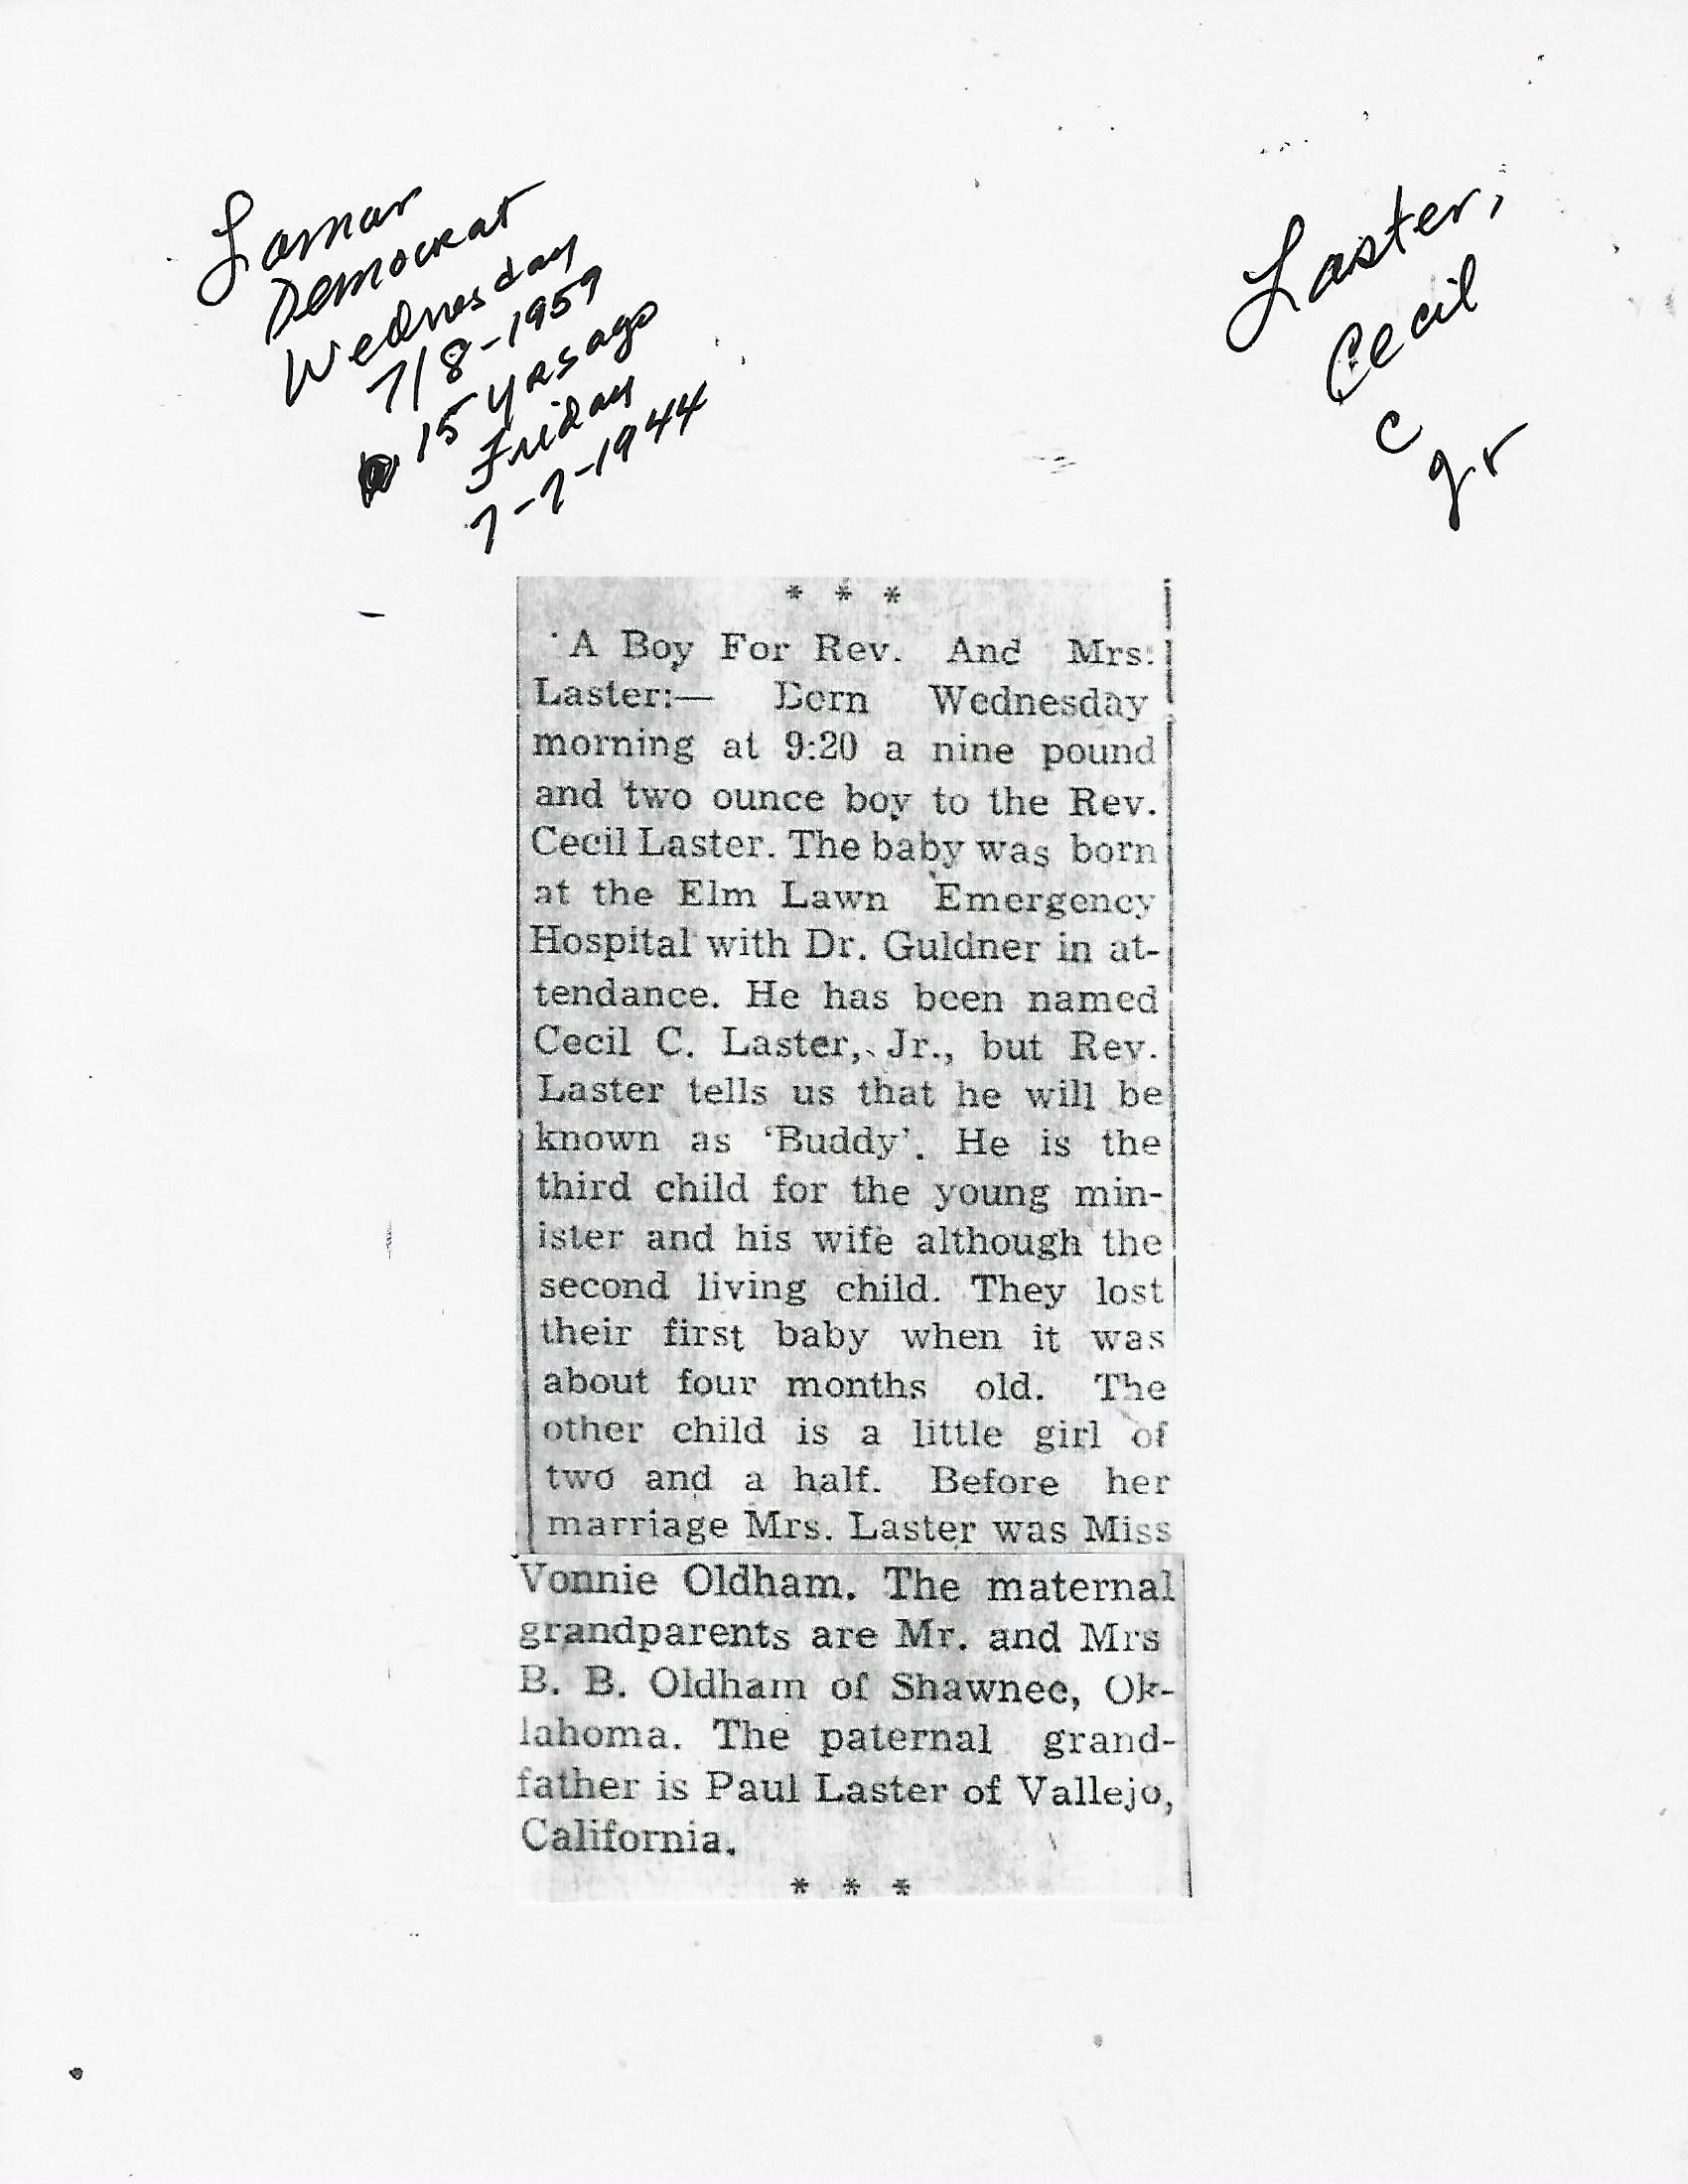 Lamar
Democrat
Wednesday
7/8-1959
15 yrs ago
Friday
7-7-1944
Laster,
Cecil
C
Jr
* * *
A Boy For Rev. And Mrs.
Laster:— Born Wednesday
morning at 9:20 a nine pound
and two ounce boy to the Rev.
Cecil Laster. The baby was born
at the Elm Lawn Emergency
Hospital with Dr. Guldner in at-
tendance. He has been named
Cecil C. Laster, Jr., but Rev.
Laster tells us that he will be
known as ‘Buddy’. He is the
third child for the young min-
ister and his wife although the
second living child. They lost
their first baby when it was
about four months old. The
other child is a little girl of
two and a half. Before her
marriage Mrs. Laster was Miss
Vonnie Oldham. The maternal
grandparents are Mr. and Mrs
B. B. Oldham of Shawnee, Ok-
lahoma. The paternal grand-
father is Paul Laster of Vallejo,
California.
* * *